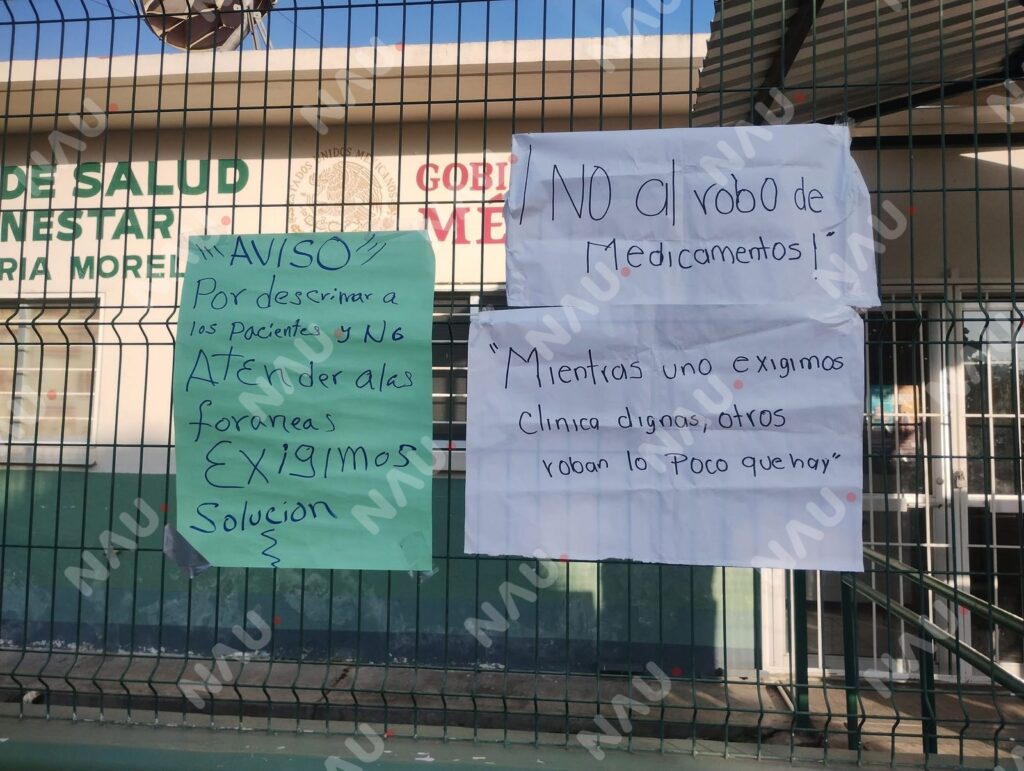 DE SALUD
NESTAR
RIA MOREL
ESTADOS UNIDOS MEXICANOS
GOBI
MÉ
"AVISO"
Por descrimar a
los Pacientes y No
Atender alas
foraneas
Exigimos
Solucion
¡NO al robo de
Medicamentos!"
"Mientras uno exigimos
Clinica dignas, otros
roban lo Poco que hay"
NAU